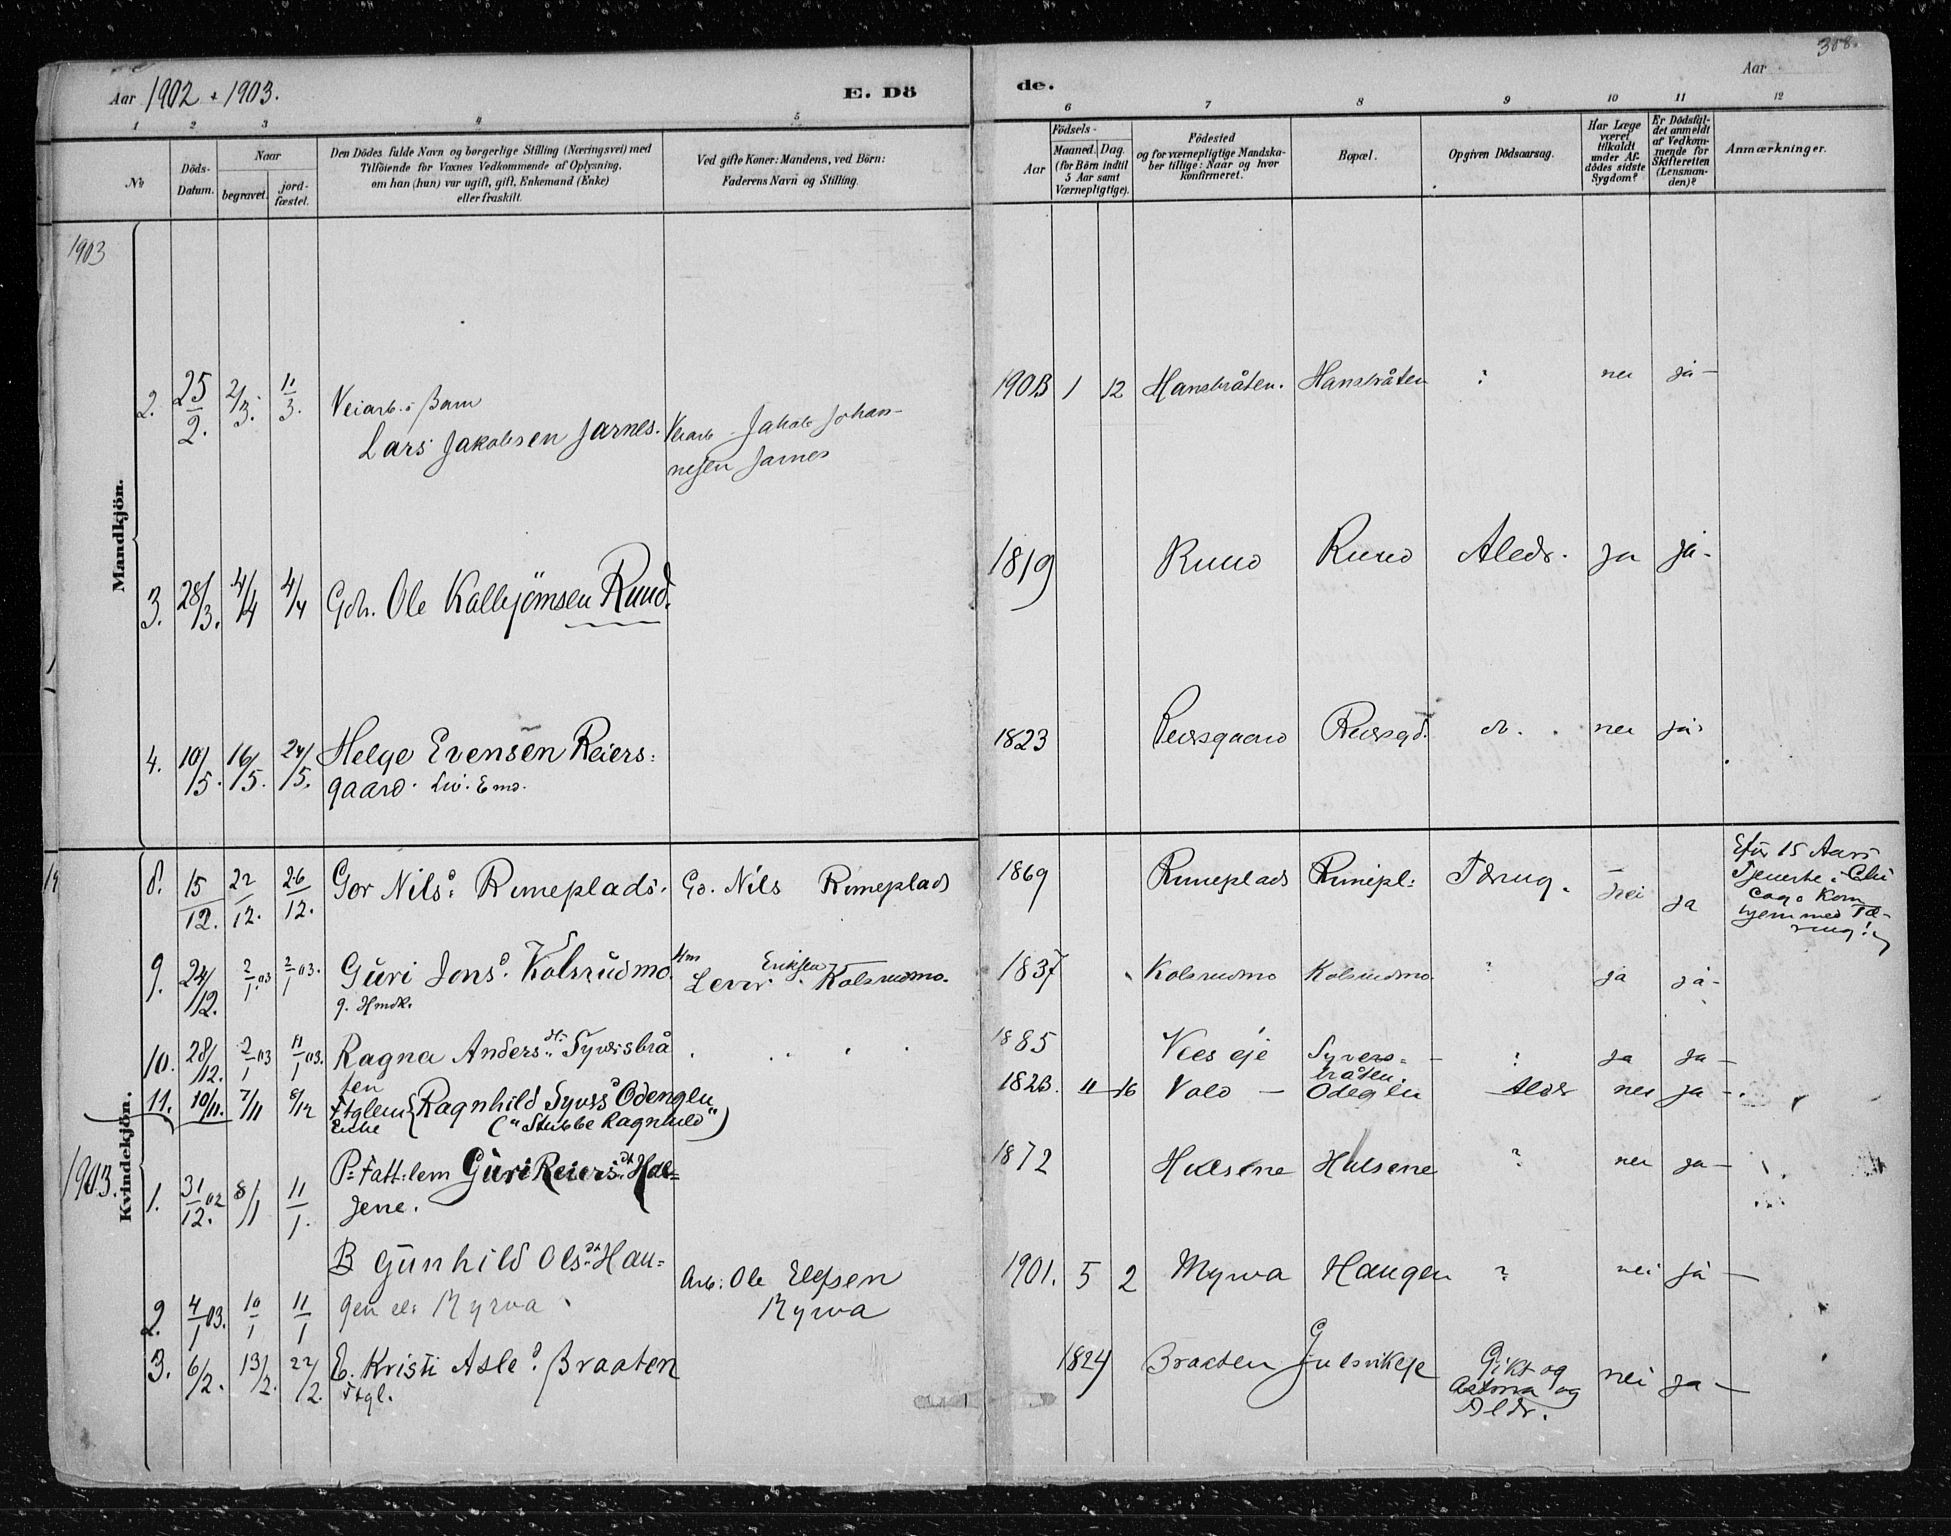 308.
Aar 1902 + 1903.
E. Dö
de.
Aar
1 2 3 4 5
6 7 8 9 10 11 12
No
Döds-
Datum.
Naar
begravet.
jord-
fæstet.
Den Dödes fulde Navn og borgerlige Stilling (Næringsvei) med
Tilföiende for Voxnes Vedkommende af Oplysning,
om han (hun) var ugift, gift, Enkemand (Enke)
eller fraskilt.
Ved gifte Koner: Mandens, ved Börn:
Faderens Navn og Stilling.
Födsels-
Aar
Maaned. Dag.
(for Börn indtil
5 Aar samt
Værnepligtige).
Födested
og for værnepligtige Mandska-
ber tillige: Naar og hvor
konfirmeret.
Bopæl.
Opgiven Dödsaarsag.
Har Læge
været
tilkaldt
under Af-
dödes sidste
Sygdom?
Er Dödsfal-
det anmeldt
af Vedkom-
mende for
Skifteretten
(Lensman-
den)?
Anmærkninger.
1903
Mandkjön.
2. 25/2. 2/3. 11/3. Veiarb.s Barn
Lars Jakobsen Jarnes. Veiarb. Jakob Johan-
nesen Jarnes
1903 1 12 Hansbråten. Hansbråten ? nei ja -
3. 28/3. 4/4 4/4 Gdr. Ole Kolbjörnsen Ruud.
1819 Ruud Ruud Aldr. ja ja -
4. 10/5. 16/5. 24/5. Helge Evensen Reiers=
gaard.
1823 Reiersgaard Reiersgd. do. nei ja
Kvindekjön.
8. 15/12. 22/12. 26/12. Gor Nilsd. Rimeplads. Gd. Nils Rimeplads
1869 Rimeplads Rimepl: Tæring. nei ja
Efter 15 Aars
Tjeneste i Chi
cago kom
hjem med Tæ-
ring!
9. 24/12. 2/1.03 2/1 03. Guri Jonsd. Kolsrudmo. Hm Eriksen
g. Hmdk. Kolsrudmo.
1837 Kolsrudmo Kolsrudmo. ? ja ja -
10. 28/12. 2/1 03 11/1 03. Ragna Andersdt. Syversbrå
ten
1885 Vees eje Syvers=
bråten. ? ja ja -
11. 10/11. 7/11 8/12 Ftglem Ragnhild Syversd Ödenglen
Enke ("Stubbe Ragnhild")
1823. 11 16 Vold - Aldr nei ja -
1903.
1. 31/12. 02 8/1 11/1. P: Fatt:lem Guri Reiersdt. Hal=
1872 ? nei ja -
2. 4/1 03. 10/1 11/1 B Gunhild Olsdt. Hau=
gen el: Myrva
Arb: Ole Elefsen
Myrva
1901. 5 2 Myrva Haugen ? nei ja -
3. 6/2. 13/2. 22/2. E. Kristi Asled. Braaten
Ftgl.
1824 Braaten Gulsvikeje Gikt og
Astma og
Aldr. nei ja -